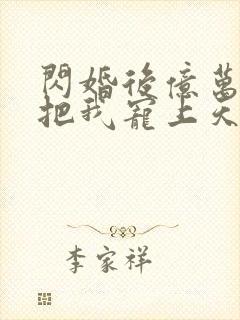 閃婚後億萬
把我寵上天
李家祥